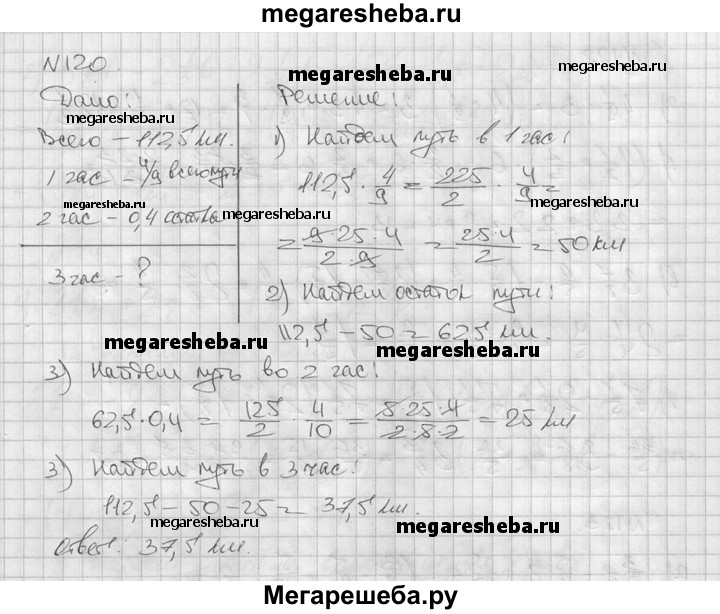 megaresheba.ru
№120.
megaresheba.ru
Дано: Решение:
megaresheba.ru
Всего – 112,5 км. 1) Найдем путь в 1 час:
1 час – 4/9 всего пути 112,5 · 4/9 = 225/2 · 4/9 =
megaresheba.ru megaresheba.ru
2 час – 0,4 остатка megaresheba.ru
= 9·25·4/2·9 = 25·4/2 = 50 км
3 час – ?
2) Найдем остаток пути:
megaresheba.ru 112,5 – 50 = 62,5 км.
megaresheba.ru
3) Найдем путь во 2 час:
62,5·0,4 = 125/2 · 4/10 = 5·25·4/2·5·2 = 25 км
3) Найдем путь в 3 час:
112,5 – 50 – 25 = 37,5 км.
megaresheba.ru megaresheba.ru
Ответ: 37,5 км.
megaresheba.ru
Мегарешеба.ру